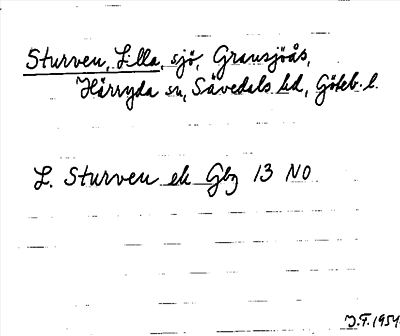 Sturven, Lilla, sjö, Gransjöås,
Härryda sn, Sävedals hd, Göteb. l.
L. Sturven ek Gbg 13 NO
J.F. 1954